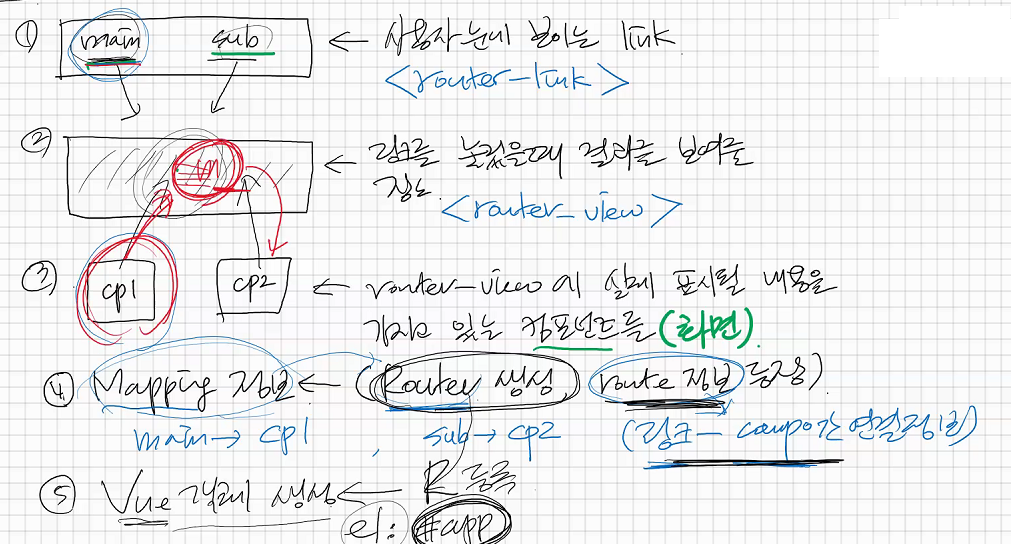 ① main sub ← 사용자 눈에 보이는 link
<router-link>
② ← 링크를 눌렀을때 결과를 보여줄
장소
<router-view>
③ cp1 cp2 ← router-view에 실제 표시될 내용을
가지고 있는 컴포넌트들 (화면).
④ Mapping 정보 ← (Router 생성, route 정보 등장)
main → cp1 , sub → cp2 (링크 - compo간 연결정보)
⑤ Vue 객체 생성 ← R 등록
el: #app